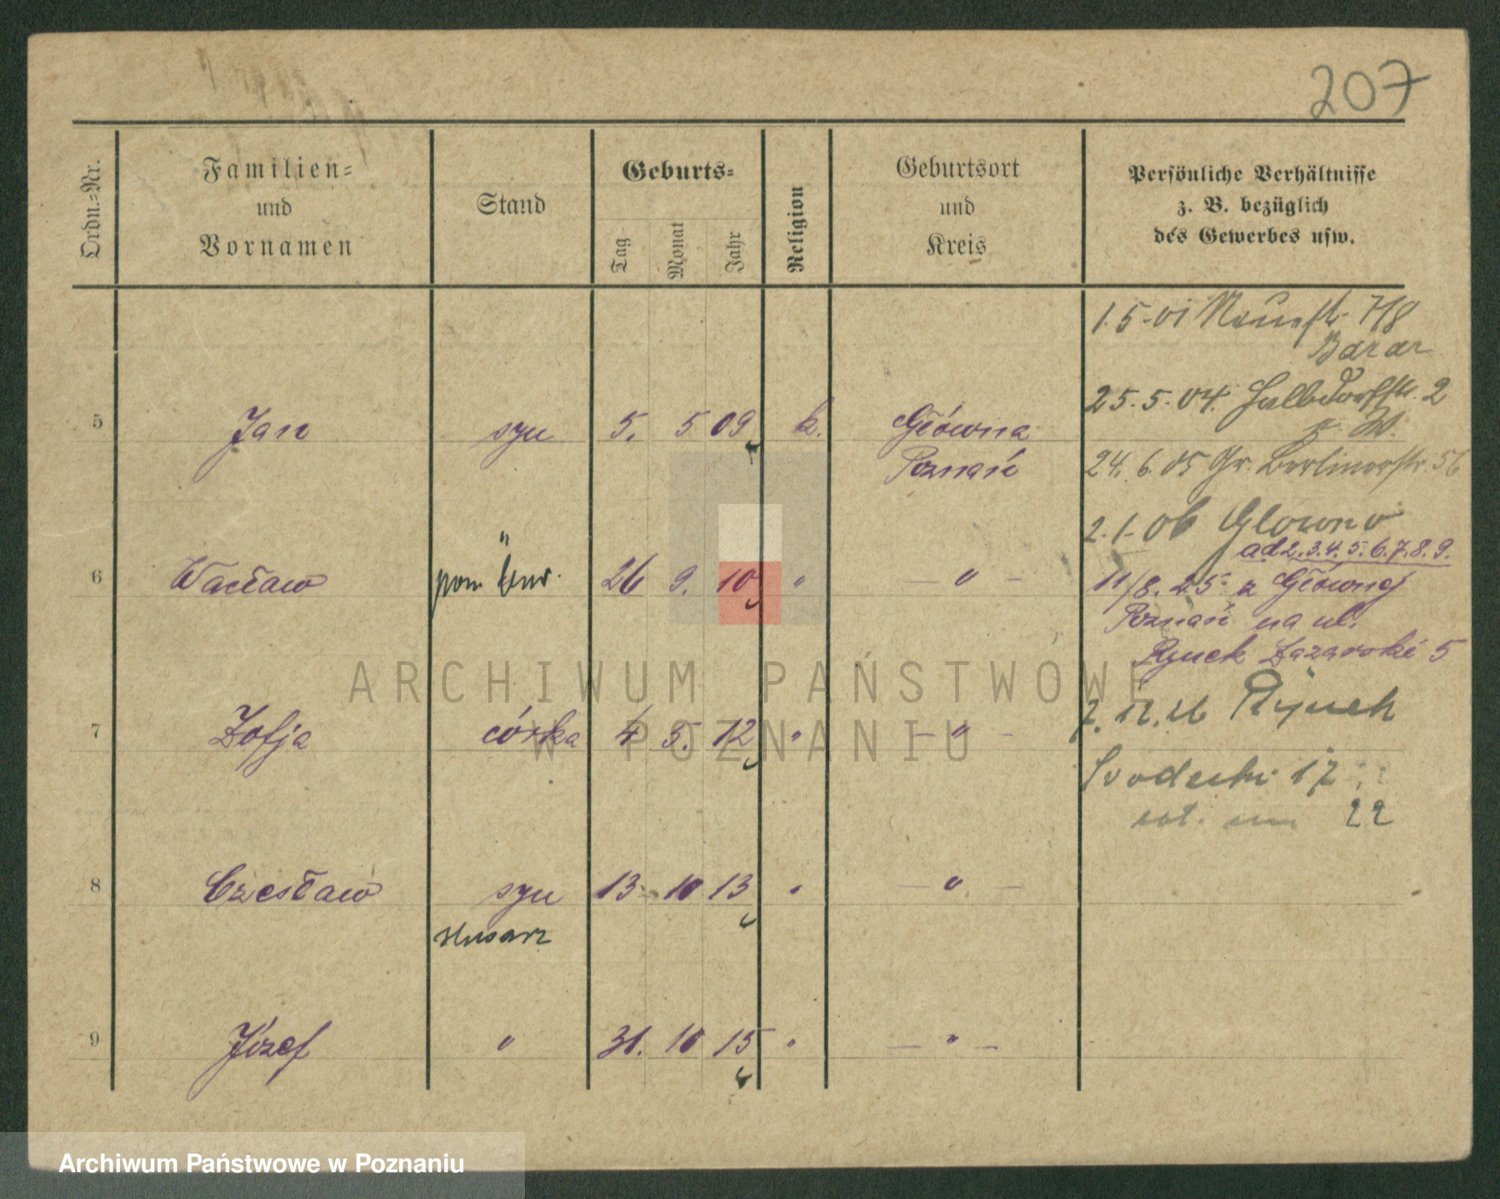 207
Ordn.-Nr.
Familien-
und
Vornamen
Stand
Geburts-
Tag
Monat
Jahr
Religion
Geburtsort
und
Kreis
Persönliche Verhältnisse
z. B. bezüglich
des Gewerbes usw.
1.5.01 Neuestr. 7/8
Bazar
25.5.04. Halbdorfstr. 2
5 Jan syn 5. 5 09 k. Główna
Poznań
24.6.05 Gr. Berlinerstr. 56
2.1.06 Glowno
ad 2.3.4.5.6.7.8.9.
6 Wacław " 26 9. 10 " — " —
11/8.25 z Głównej
Poznań na ul.
Rynek Łazarski 5
7 Zofja córka 4 5. 12 " — " —
7.12.26 Rynek
Śródecki 17
22
8 Czesław syn 13 10 13 " — " —
ślusarz
9 Józef " 31. 10 15 " — " —
ARCHIWUM PAŃSTWOWE
W POZNANIU
Archiwum Państwowe w Poznaniu